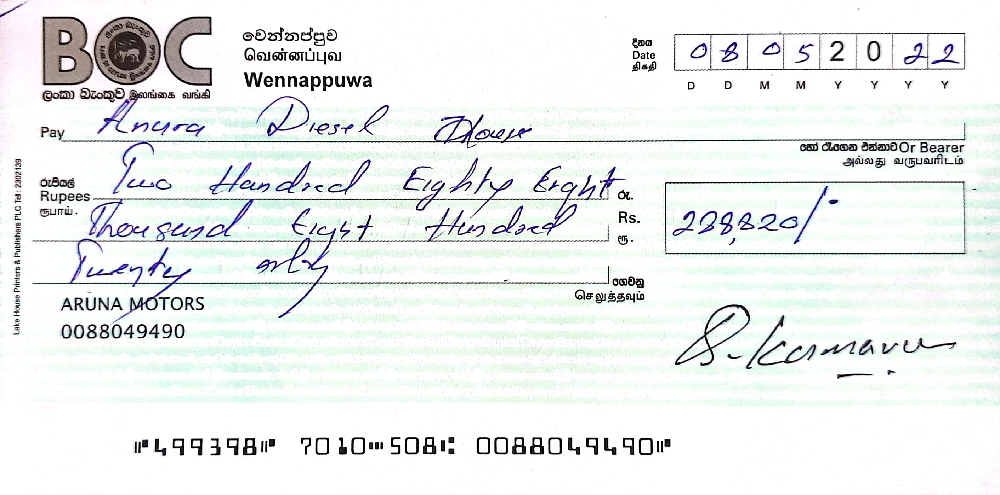 BOC
ලංකා බැංකුව இலங்கை வங்கி
වෙන්නප්පුව
வென்னப்புவ
Wennappuwa
දිනය
Date
திகதி
08052022
D D M M Y Y Y Y
Pay Anura Diesel House
හෝ රැගෙන එන්නාට Or Bearer
அல்லது வருபவரிடம்
රුපියල්
Rupees
ரூபாய்.
Two Hundred Eighty Eight
Thousand Eight Hundred
Twenty only
රු.
Rs.
ரூ.
288,820/-
ගෙවනු
செலுத்தவும்
ARUNA MOTORS
0088049490
Lake House Printers & Publishers PLC Tel : 2302139
499398 7010 508 0088049490